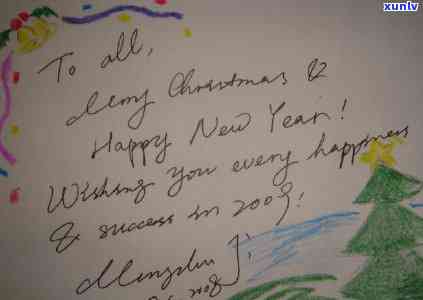 xunlv
www.xunlv.cn
To all,
Merry Christmas &
Happy New Year!
Wishing you every happiness
& success in 2009!